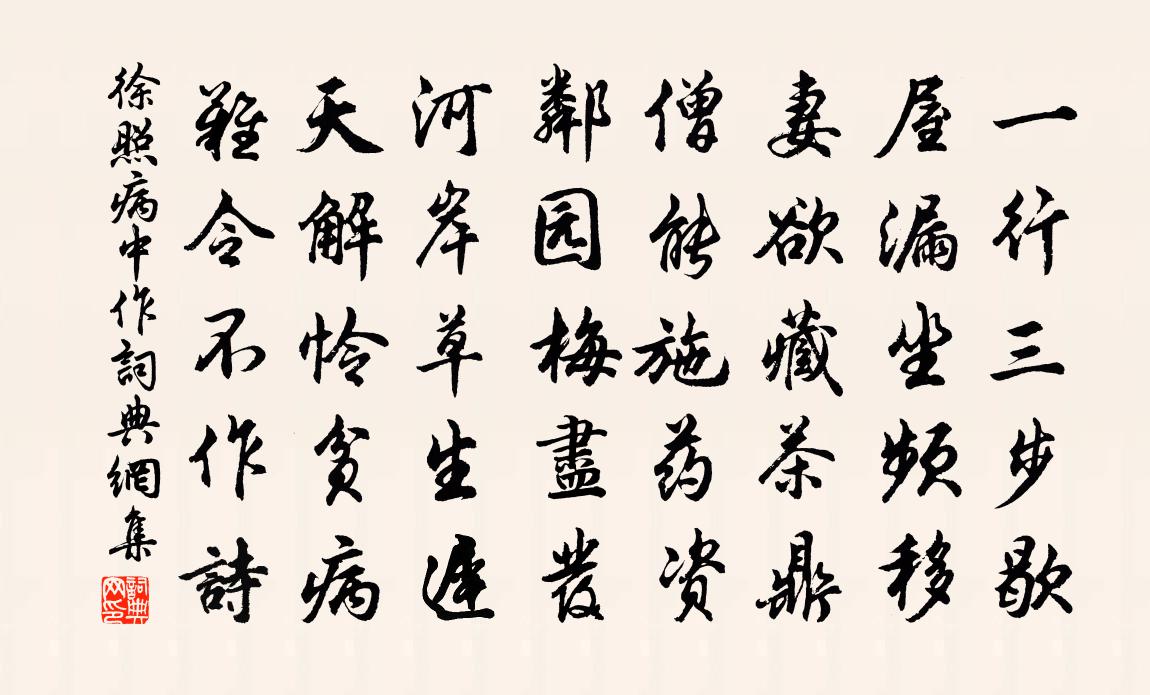 一行三步歇
屋漏坐频移
妻欲藏茶鼎
僧能施药资
鄰园梅盡發
河岸草生遲
天解怜贫病
難令不作詩
徐照病中作詞典網集
詞典网印